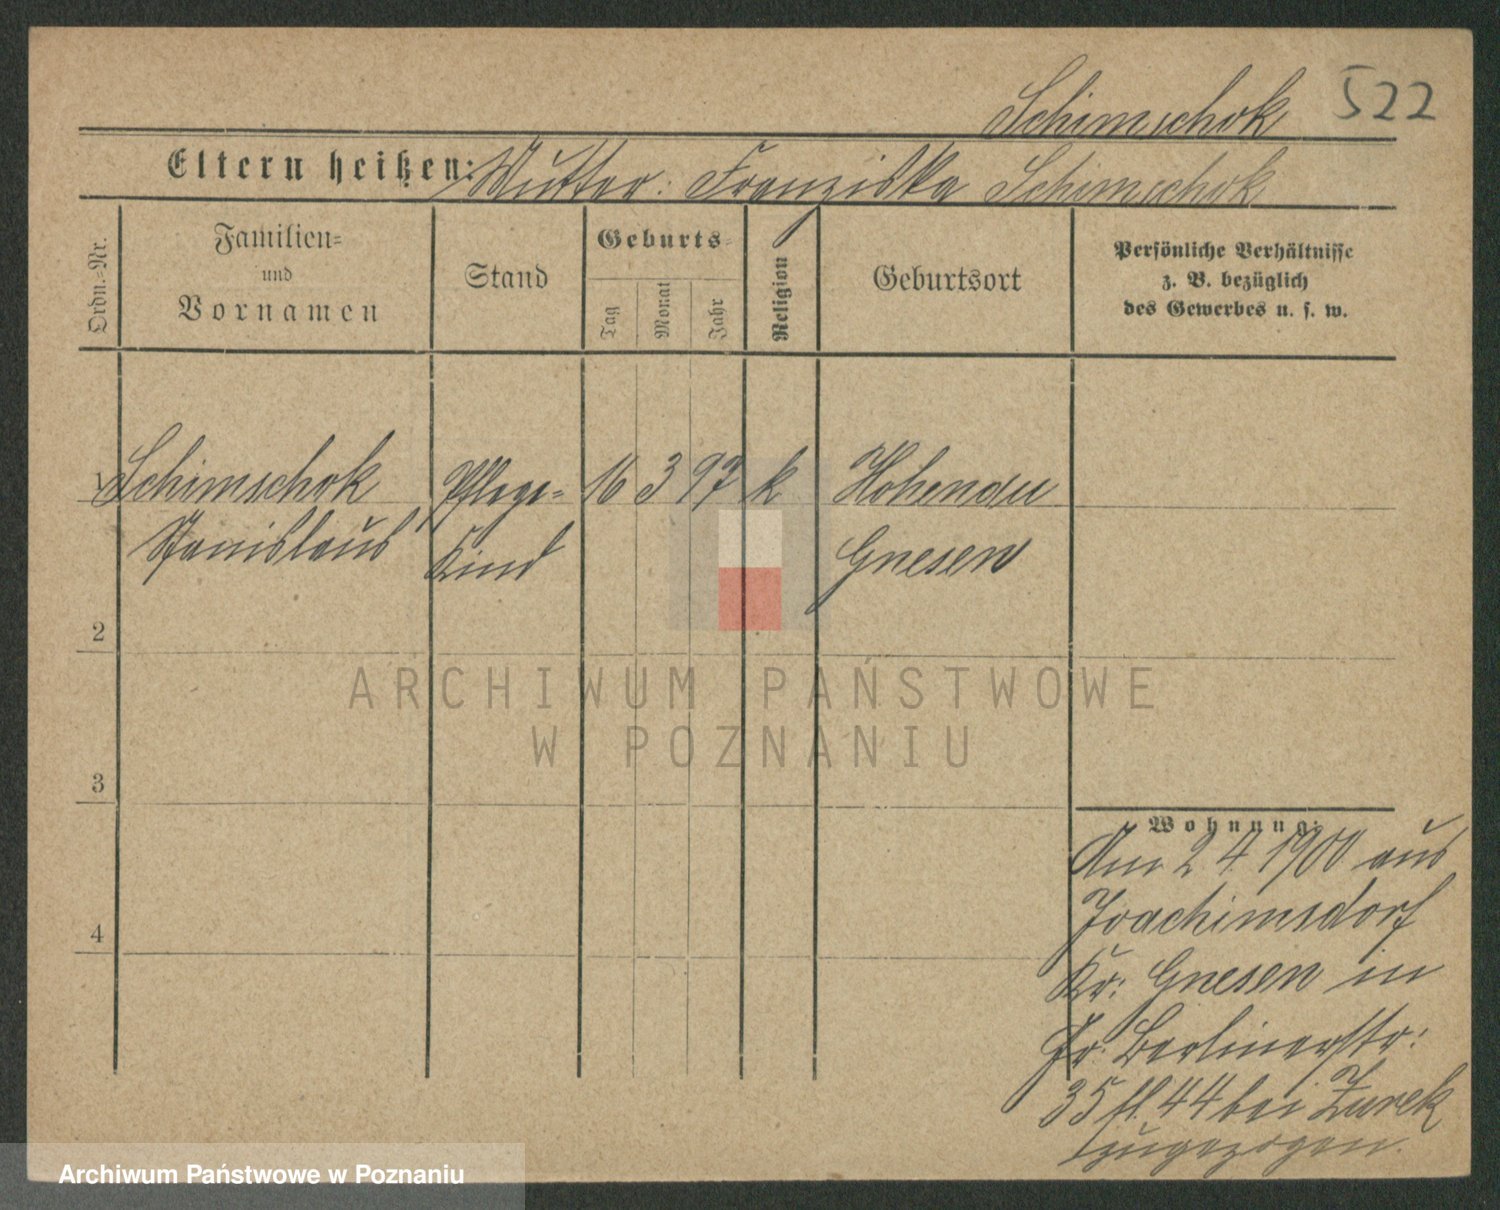 Schimschok 522
Eltern heißen: Mutter: Franziska Schimschok
Ordn.=Nr.
Familien=
und
Vornamen
Stand
Geburts=
Tag
Monat
Jahr
Religion
Geburtsort
Persönliche Verhältnisse
z. B. bezüglich
des Gewerbes u. s. w.
1 Schimschok Pflege= 16 3 97 k Hohenau
Stanislaus Kind Gnesen
2
3
4
ARCHIWUM PAŃSTWOWE
W POZNANIU
Wohnung:
Am 2 4 1900 aus
Joachimsdorf
Kr: Gnesen in
Berlinerstr:
35 44 bei Zurek
zugezogen.
Archiwum Państwowe w Poznaniu